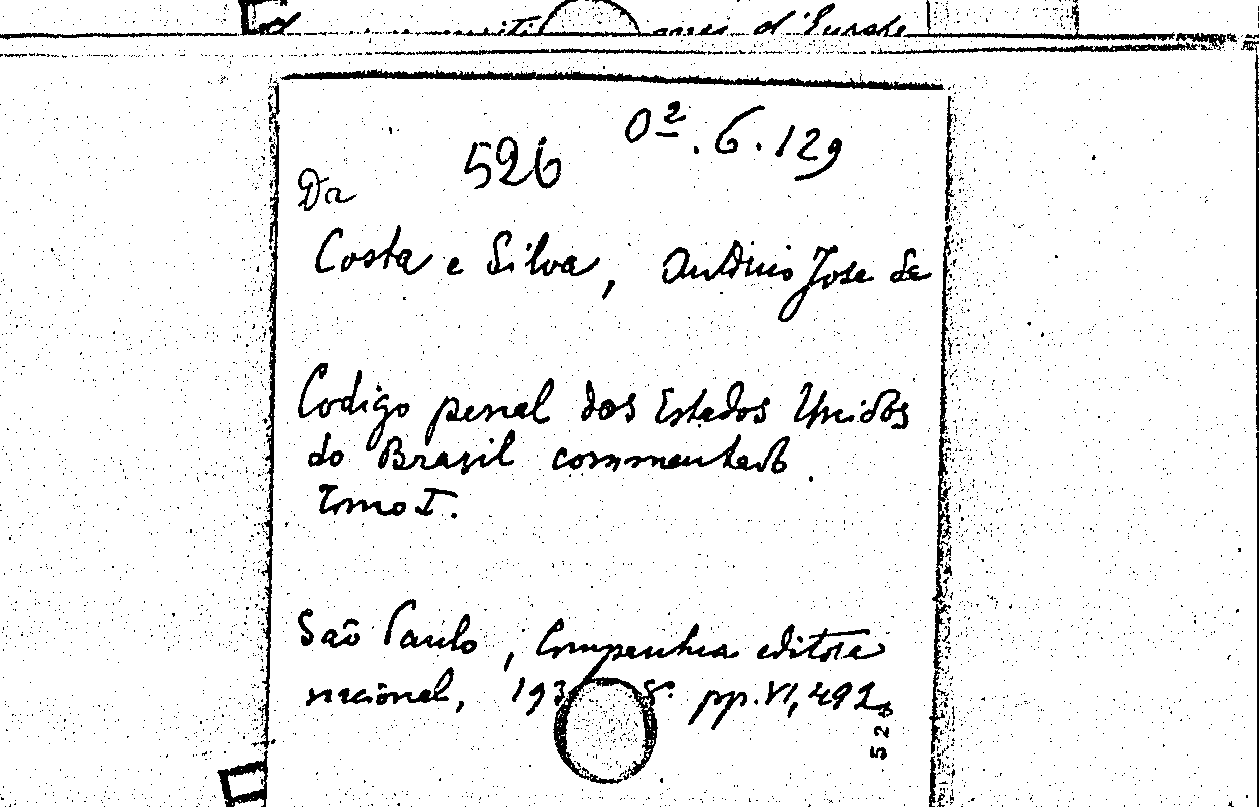 d'Europe
O2. 6. 129
526
Da
Costa e Silva, António Jose de
Codigo penal dos Estados Unidos
do Brasil commentado.
Tomo I.
São Paulo, Companhia editora
nacional, 193 8° pp. VI, 492
526